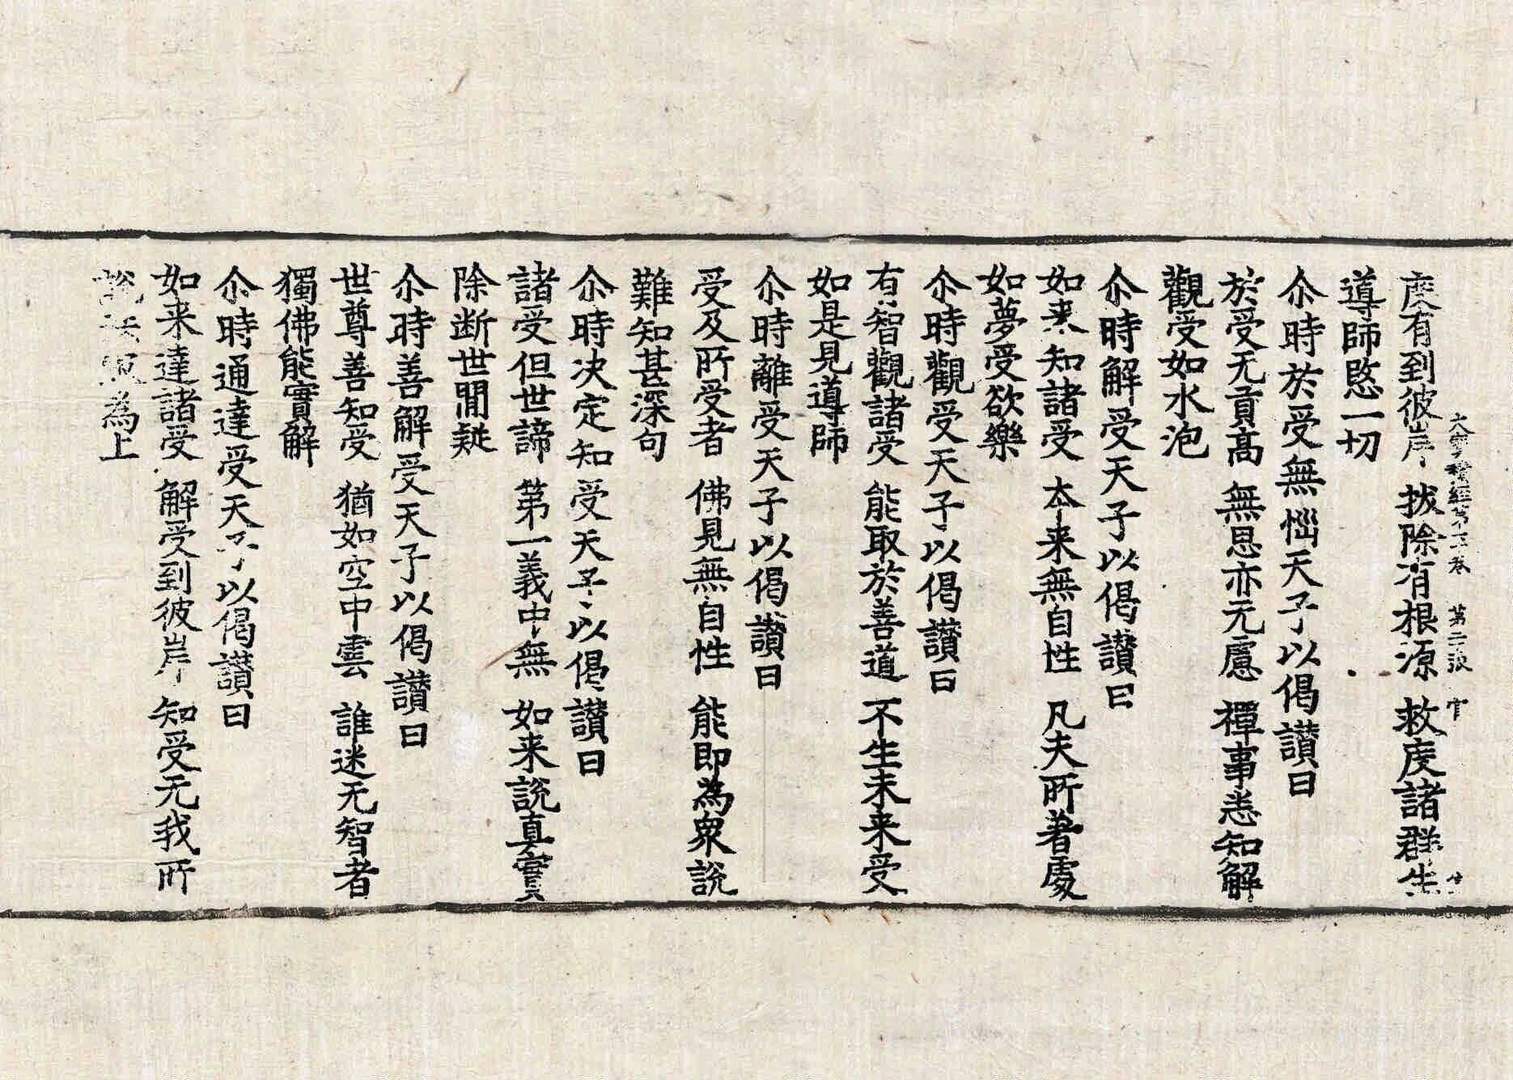 大寶積經第 卷 第二張 官
度有到彼岸 拔除有根源 救度諸群生
導師愍一切
尒時於受無惱天子以偈讃曰
於受无貢高 無思亦无慮 禪事悉知解
觀受如水泡
尒時解受天子以偈讃曰
如来知諸受 本来無自性 凡夫所著處
如夢受欲樂
尒時觀受天子以偈讃曰
有智觀諸受 能取於善道 不生未来受
如是見導師
尒時離受天子以偈讃曰
受及所受者 佛見無自性 能即為衆說
難知甚深句
尒時决定知受天子以偈讃曰
諸受但世諦 第一義中無 如来說真實
除断世閒疑
尒時善解受天子以偈讃曰
世尊善知受 猶如空中雲 誰迷无智者
獨佛能實解
尒時通達受天子以偈讃曰
如来達諸受 解受到彼岸 知受无我所
說 為上